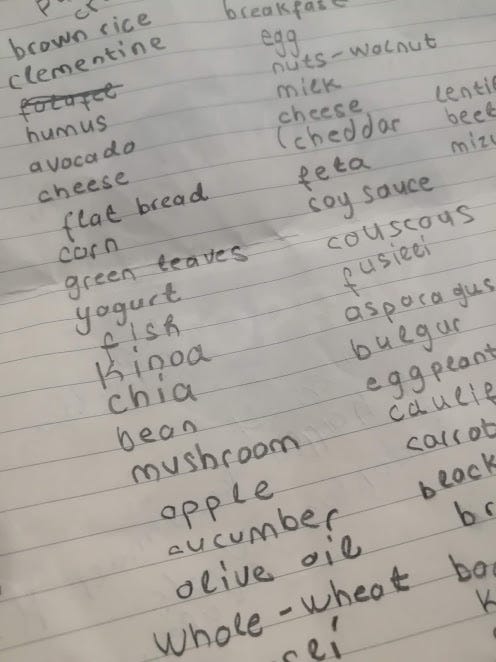 brown rice
clementine
humus
avocado
cheese
flat bread
corn
green leaves
yogurt
fish
kinoa
chia
bean
mushroom
apple
cucumber
olive oil
whole-wheat
breakfast
egg
nuts-walnut
milk
cheese
(cheddar
feta
soy sauce
couscous
fusilli
asparagus
bulgur
eggplant
caulif
carrot
black
br
lenti
beet
miz